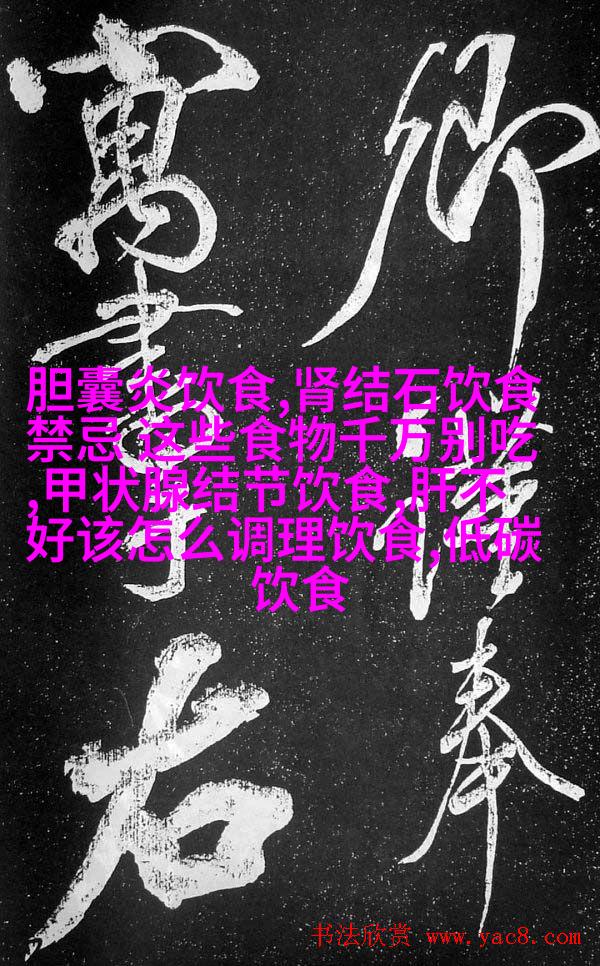 卿謹奉
寓書于右
胆囊炎饮食,肾结石饮食
禁忌 这些食物千万别吃
,甲状腺结节饮食,肝不
好该怎么调理饮食,低碳
饮食
书法欣赏 www.yac8.com